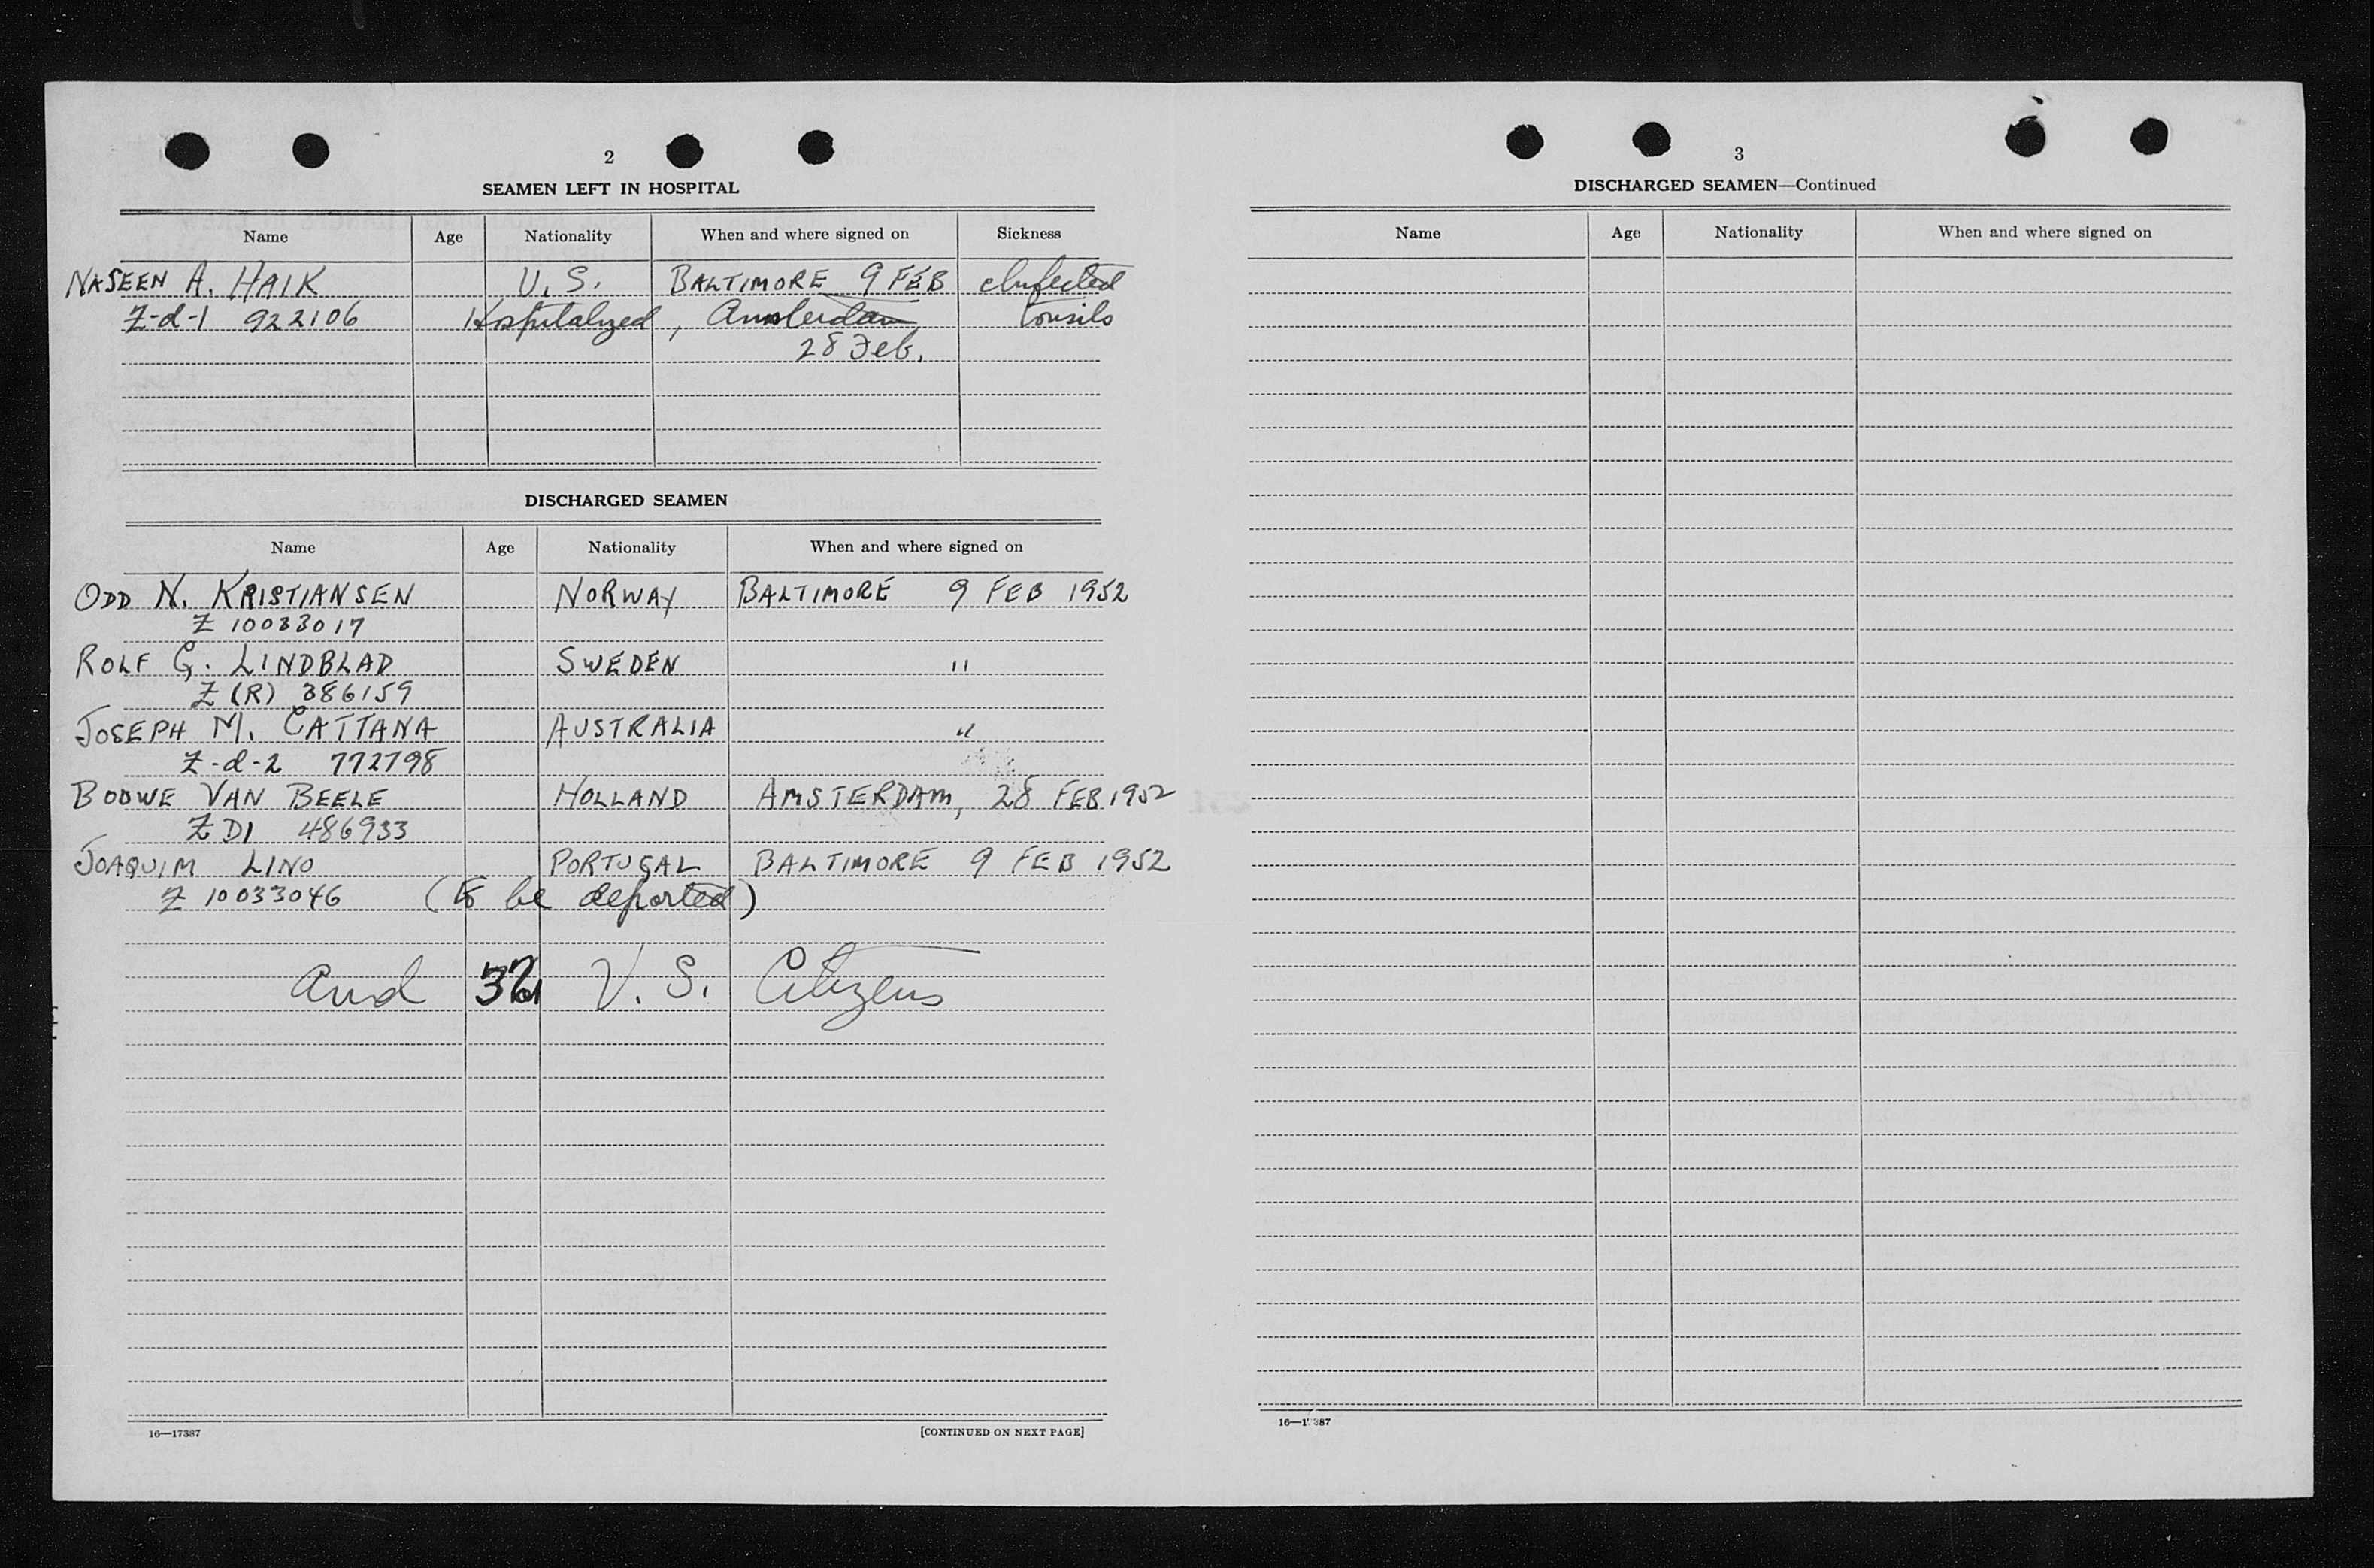 2
SEAMEN LEFT IN HOSPITAL
Name Age Nationality When and where signed on Sickness
NASEEN A. HAIK U.S. BALTIMORE 9 FEB Infected
Z-d-1 922106 Hospitalized, Amsterdam tonsils
28 Feb.
DISCHARGED SEAMEN
Name Age Nationality When and where signed on
ODD N. KRISTIANSEN NORWAY BALTIMORE 9 FEB 1952
Z 10033017
ROLF G. LINDBLAD SWEDEN "
Z (R) 386159
JOSEPH M. CATTANA AUSTRALIA "
Z-d-2 772798
BOUWE VAN BEELE HOLLAND AMSTERDAM, 28 FEB 1952
Z D1 486933
JOAQUIM LINO PORTUGAL BALTIMORE 9 FEB 1952
Z 10033046 (to be deported)
and U.S. Citizens
16—17387 [CONTINUED ON NEXT PAGE]
3
DISCHARGED SEAMEN—Continued
Name Age Nationality When and where signed on
16—17387